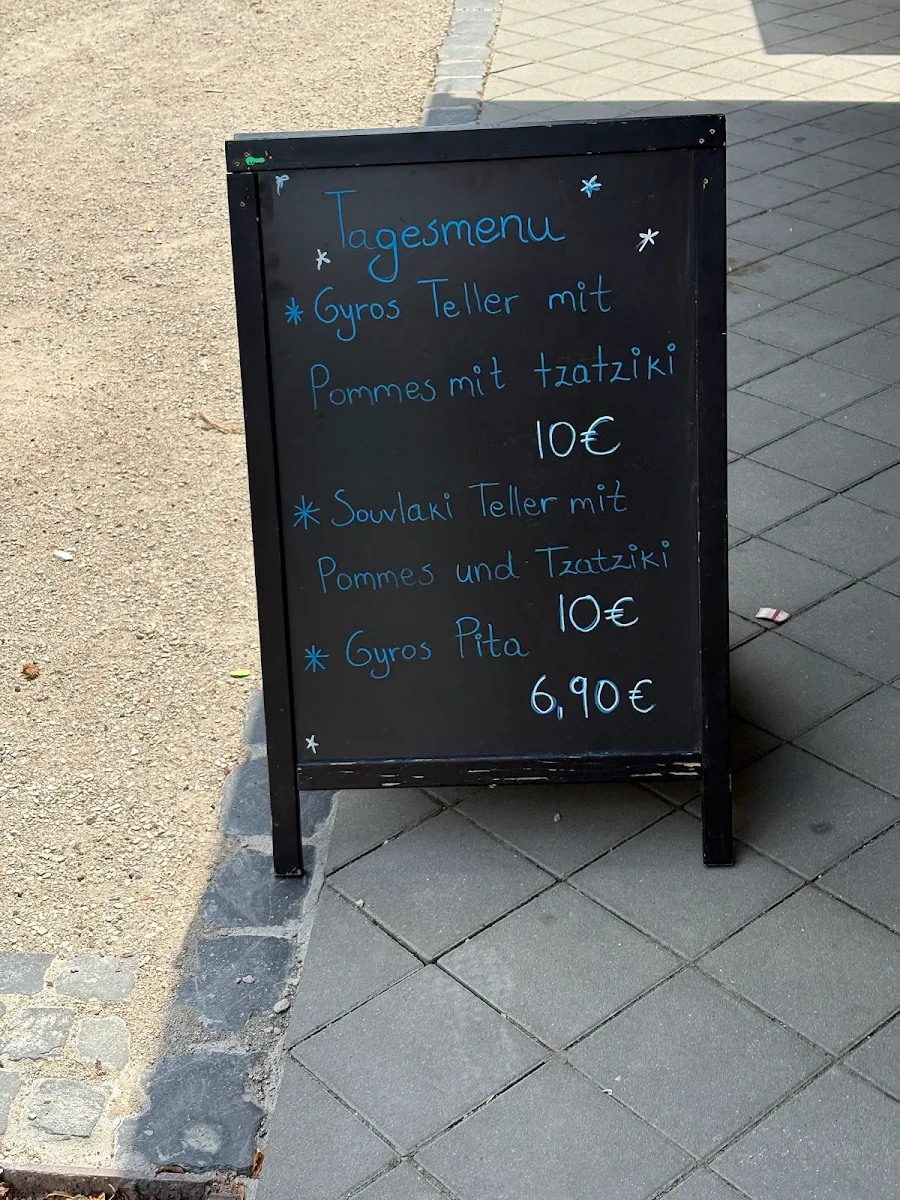 Tagesmenu
* Gyros Teller mit
Pommes mit tzatziki
10€
* Souvlaki Teller mit
Pommes und Tzatziki
10€
* Gyros Pita
6,90€